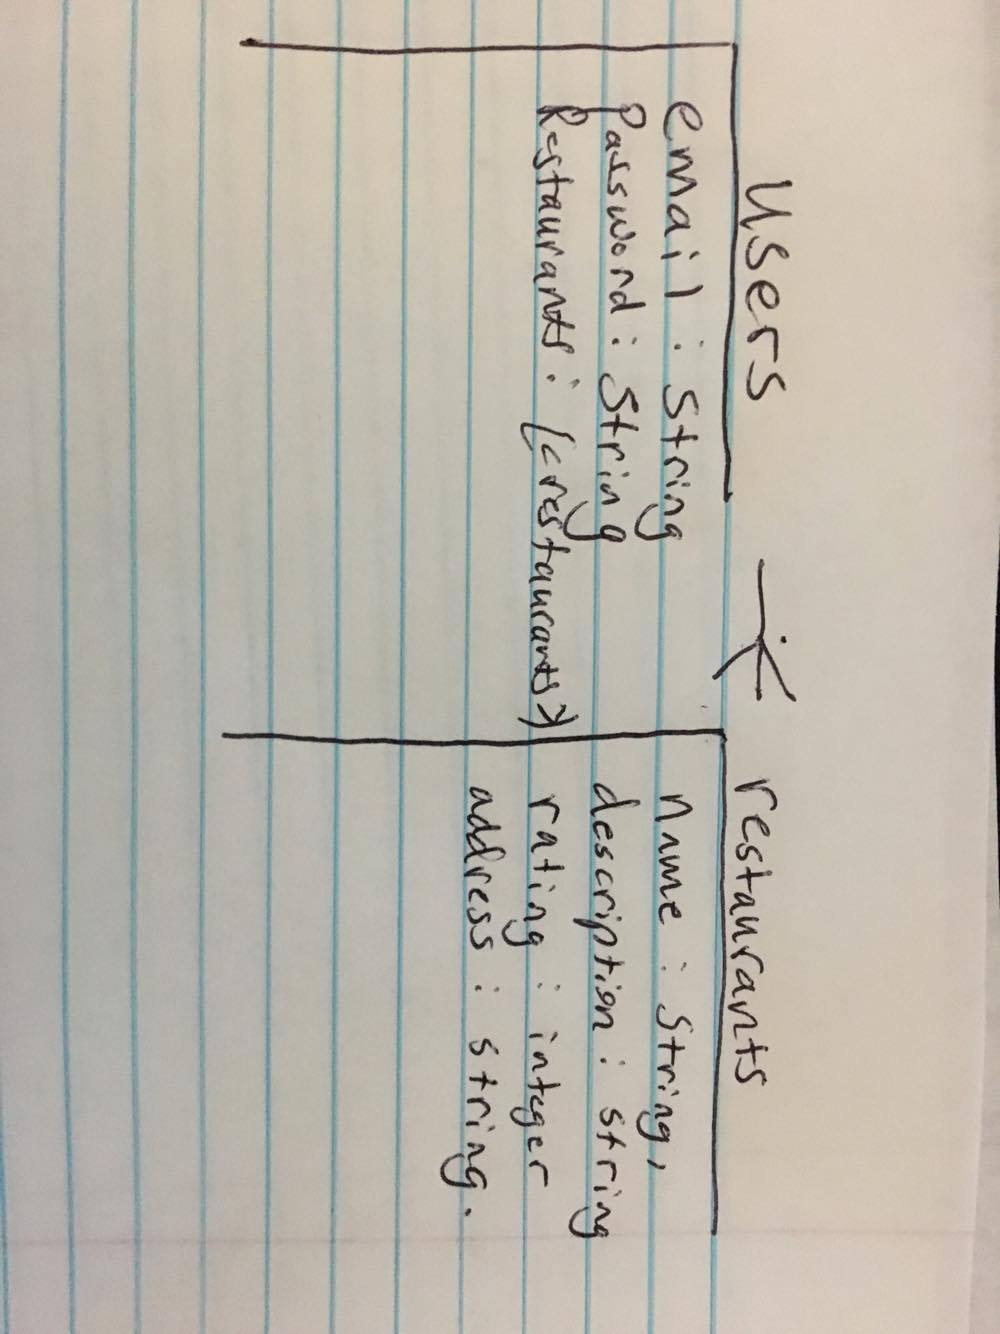 Users
email : String
Password : String
Restaurants : [<restaurants>]
restaurants
name : String,
description : string
rating : integer
address : string.